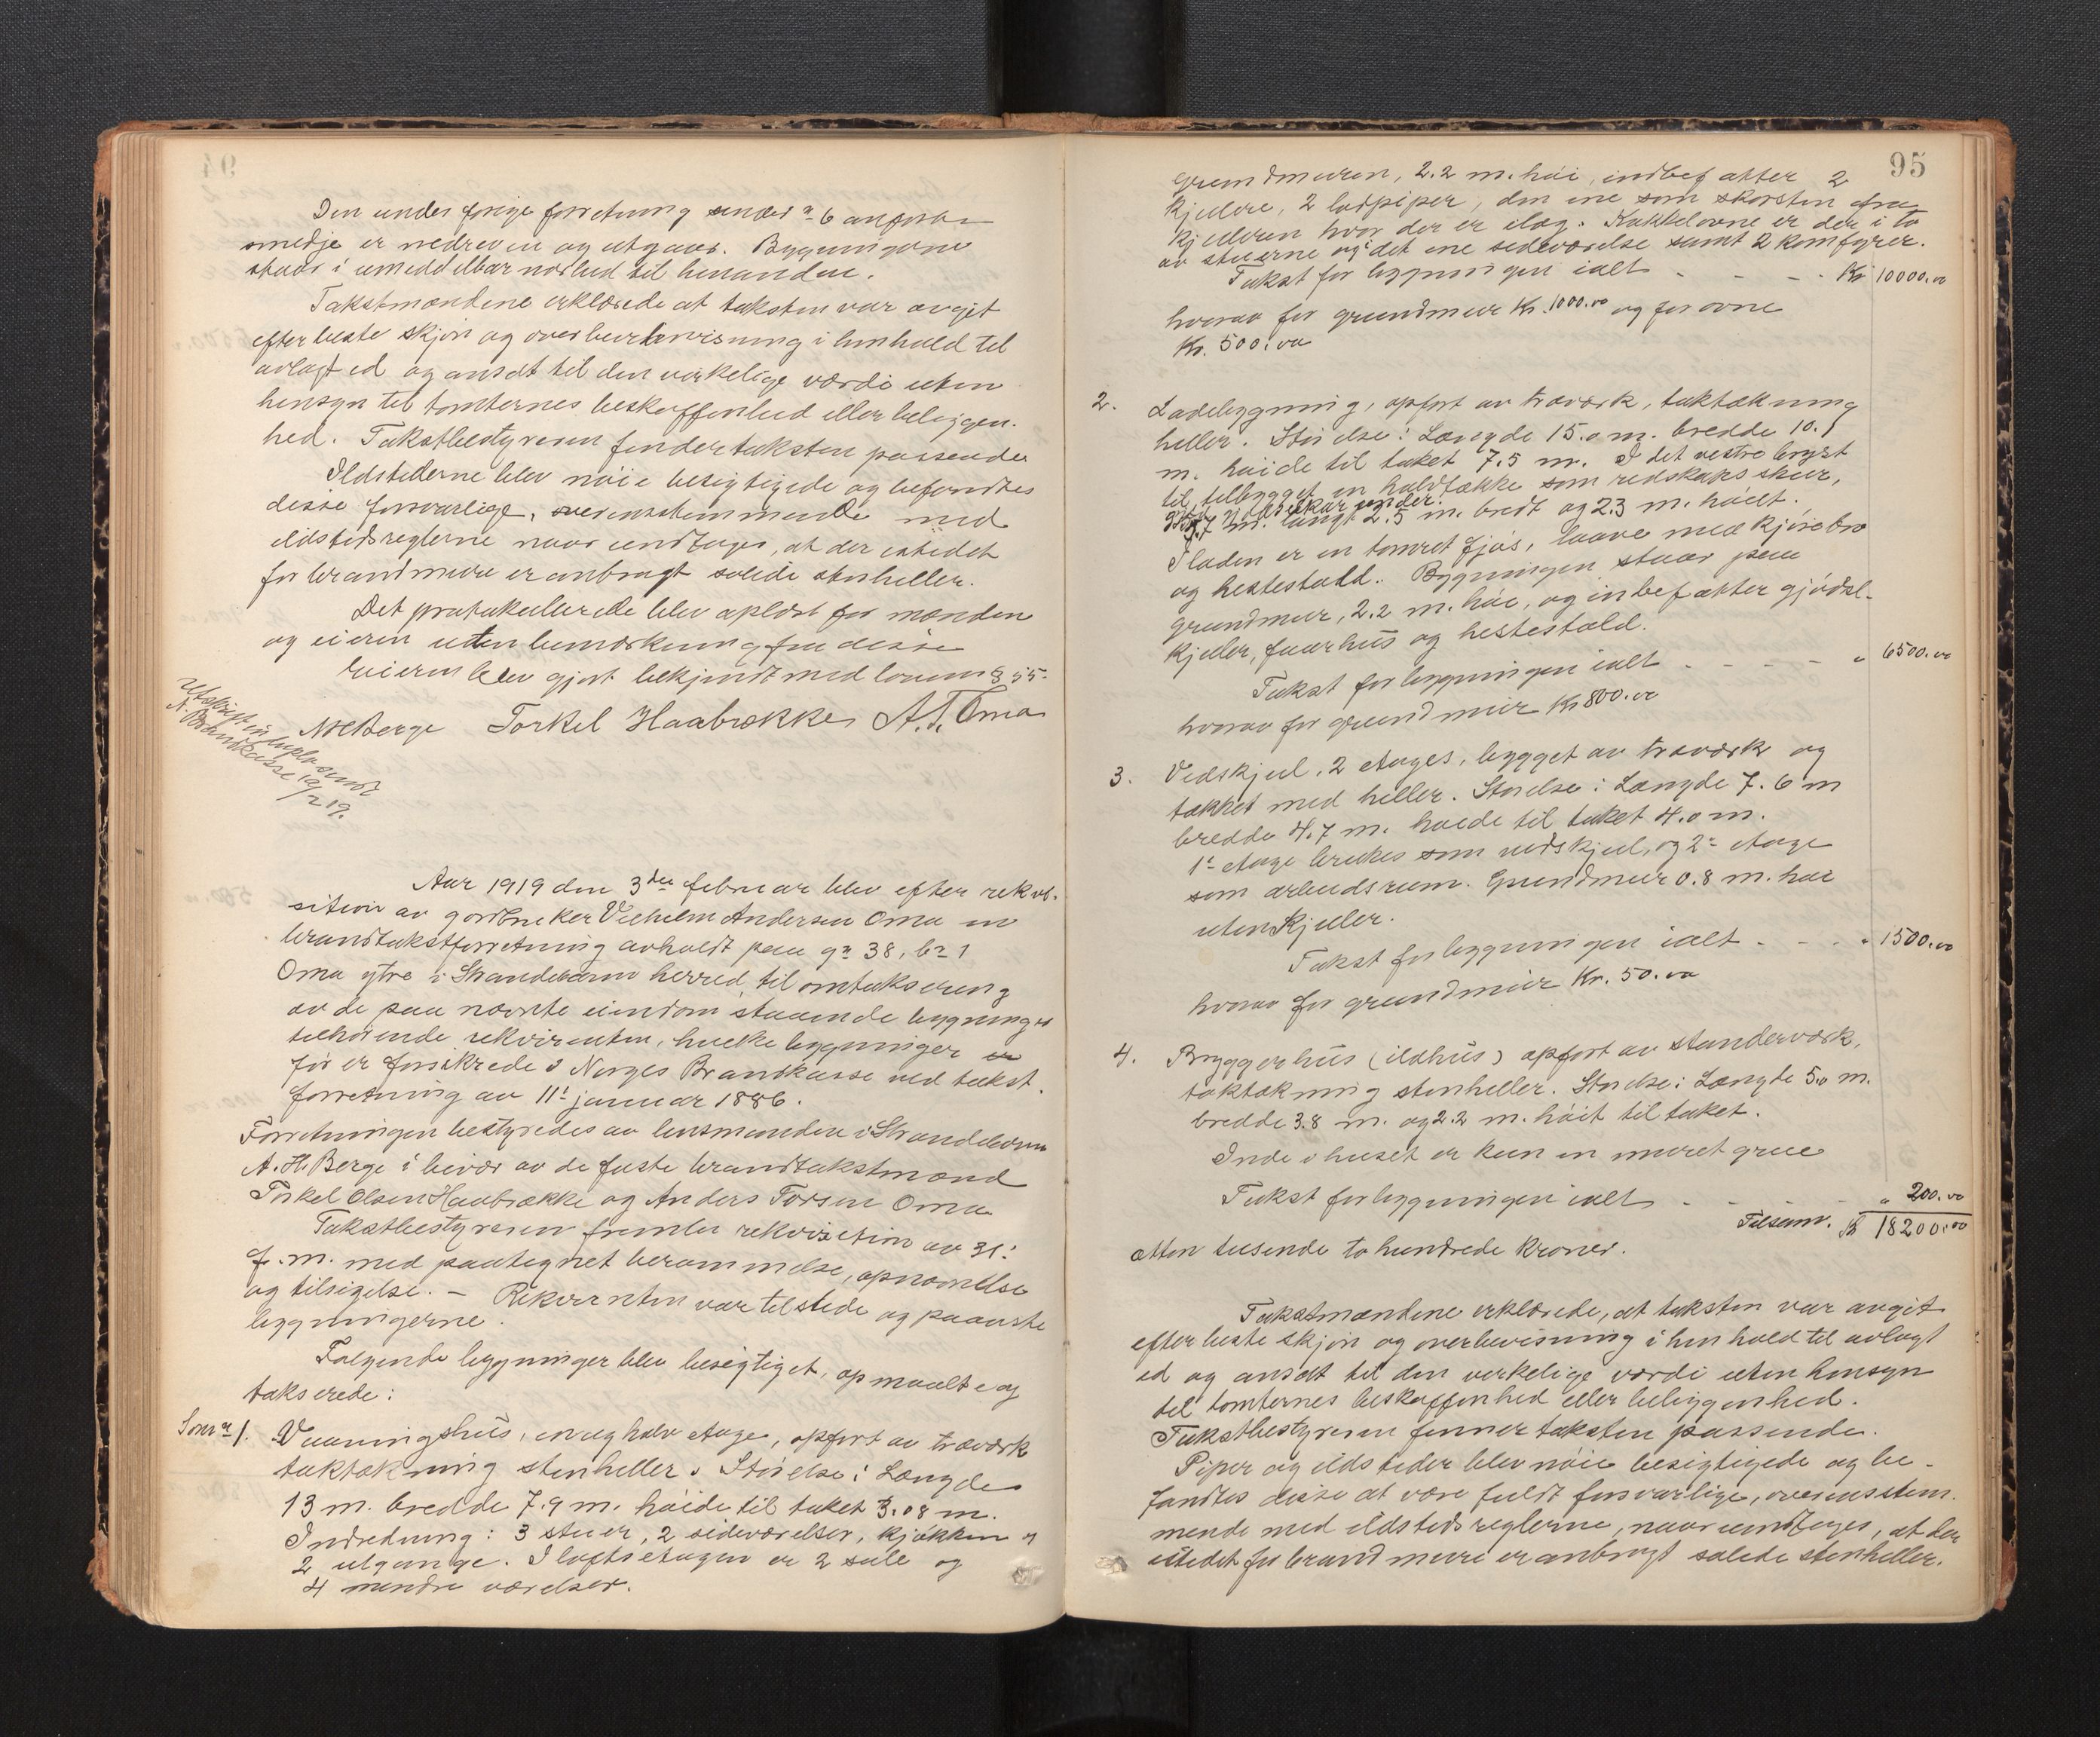 Den under forige forretning under no 6 anførte
smedje er nedreven og utgaar. Bygningerne
staar i umeddelbar nærhed til hinanden.
Takstmændene erklærede at taksten var avgit
efter beste skjøn og overbevisning i henhold til
avlagt ed og ansat til den virkelige værdi uten
hensyn til tomternes beskaffenhed eller beliggen-
hed. Takstbestyreren finder taksten passende
Ildstederne blev nøie besigtigede og befandtes
disse forsvarlige, overensstemmende med
ildstedsreglerne naar undtages, at der istedet
for brandmure er anbragt solide stenheller.
Det protokollerede blev oplæst for mændene
og eieren uten bemærkning fra disse
Eieren blev gjort bekjendt med lovens § 55.
A H Berge Torkel Haabrække A. T. Oma
Utskrift in duplo sendt
N. Brandkasse 19/2 19.
Aar 1919 den 3die februar blev efter rekvi-
sition av gardbruker Vilhelm Andersen Oma en
brandtakstforretning avholdt paa gn 38, bn 1
Oma ytre i Strandebarm herred til omtaksering
av de paa nævnte eiendom staaende bygninger
tilhørende rekvirenten, hvilke bygninger er
før er forsikrede i Norges Brandkasse ved takst-
forretning av 11t januar 1886.
Forretningen bestyredes av lensmanden i Strandebarm
A. H. Berge i bivær av de faste brandtakstmænd
Torkel Olsen Haabrække og Anders Torsen Oma
Takstbestyreren fremla rekvisition av 31.
f. m. med paategnet berammelse, opnævnelse
og tilsigelse. – Rekvirenten var tilstede og paaviste
bygningerne.
Følgende bygninger blev besigtiget, opmaalte og
takserede:
Som nr 1. Vaaningshus, en og halv etage, opført av træværk
taktækning stenheller. Størrelse: Længde
13 m. bredde 7.9 m. høide til taket 3.08 m.
Indredning: 3 stuer, 2 sideværelser, kjøkken og
2 utgange. I loftsetagen er 2 sale og
4 mindre værelser.
95
Grundmuren, 2.2 m. høi, indbefatter 2
kjelere, 2 lodpiper, den ene som skorsten fra
kjelleren hvor der er ilæg. Kakkelovne er der i to
av stuerne og det ene sideværelse samt 2 komfyrer.
Takst for bygningen ialt - - - Kr 10000.00
hvorav for grundmur Kr. 1000.00 og for ovne
Kr. 500.00
2. Ladebygning, opført av træværk, taktækning
heller. Størelse: Længde 15.0 m. bredde 10.1
m. høide til taket 7.5 m. I det vestre bryst
til tilbygget en halvtække som redskapsskur,
7 m. langt 2.5 m. bredt og 2.3 m. høit.
I laden er en tømret fjøs, laave med kjørebro
og hestestald. Bygningen staar paa
grundmur, 2.2 m. høi, og inbefatter gjødsel-
kjeller, faarhus og hestestald.
Takst for bygningen ialt - - - - " 6500.00
hvorav for grundmur Kr 800.00
3. Vedskjul, 2 etages, bygget av træværk og
tækket med heller. Størelse: Længde 7.6 m
bredde 4.7 m. høide til taket 4.0 m.
1t etage brukes som vedskjul, og 2n etage
som arbeidsrum. Grundmur 0.8 m. høi
uten kjeller.
Takst for bygningen ialt - - - " 1500.00
hvorav for grundmur Kr. 50.00
4. Bryggerhus (ildhus) opført av standerværk,
taktækning stenheller. Størelse: Længde 5.0 m.
bredde 3.8 m. og 2.2 m. høit til taket.
Inde i huset er kun en muret grue
Takst for bygningen ialt - - - - " 200.00
Tilsam. Kr 18200.00
atten tusende to hundrede Kroner.
Takstmændene erklærede, at taksten var avgit
efter beste skjøn og overbevisning i henhold til avlagt
ed og ansat til den virkelige værdi uten hensyn
til tomternes beskaffenhed eller beliggenhed.
Takstbestyreren finner taksten passende.
Piper og ildsteder blev nøie besigtigede og be-
fandtes disse at være fuldt forsvarlige, overensstem-
mende med ildstedsreglerne, naar undtages, at der
istedet for brandmure er anbragt solide stenheller.